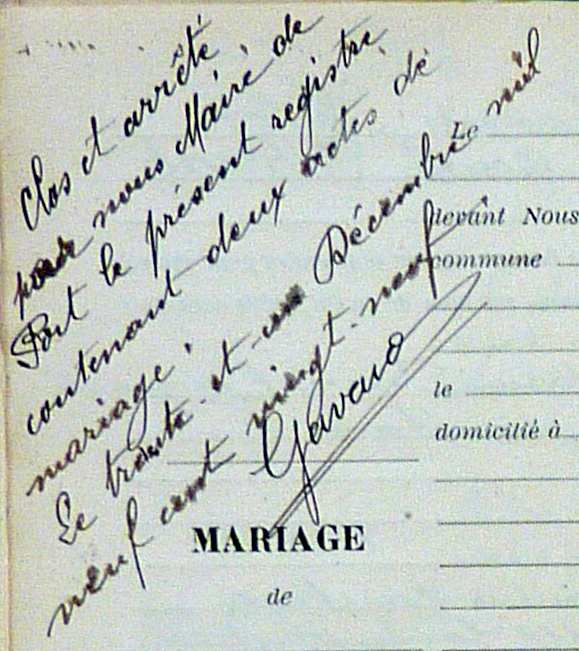 Clos et arrêté
par nous Maire de
Port le présent registre
contenant deux actes de
mariage.
Le trente-et-un Décembre mil
neuf cent vingt-neuf.
Gavard
Le
devant Nous
commune
le
domicilié à
MARIAGE
de